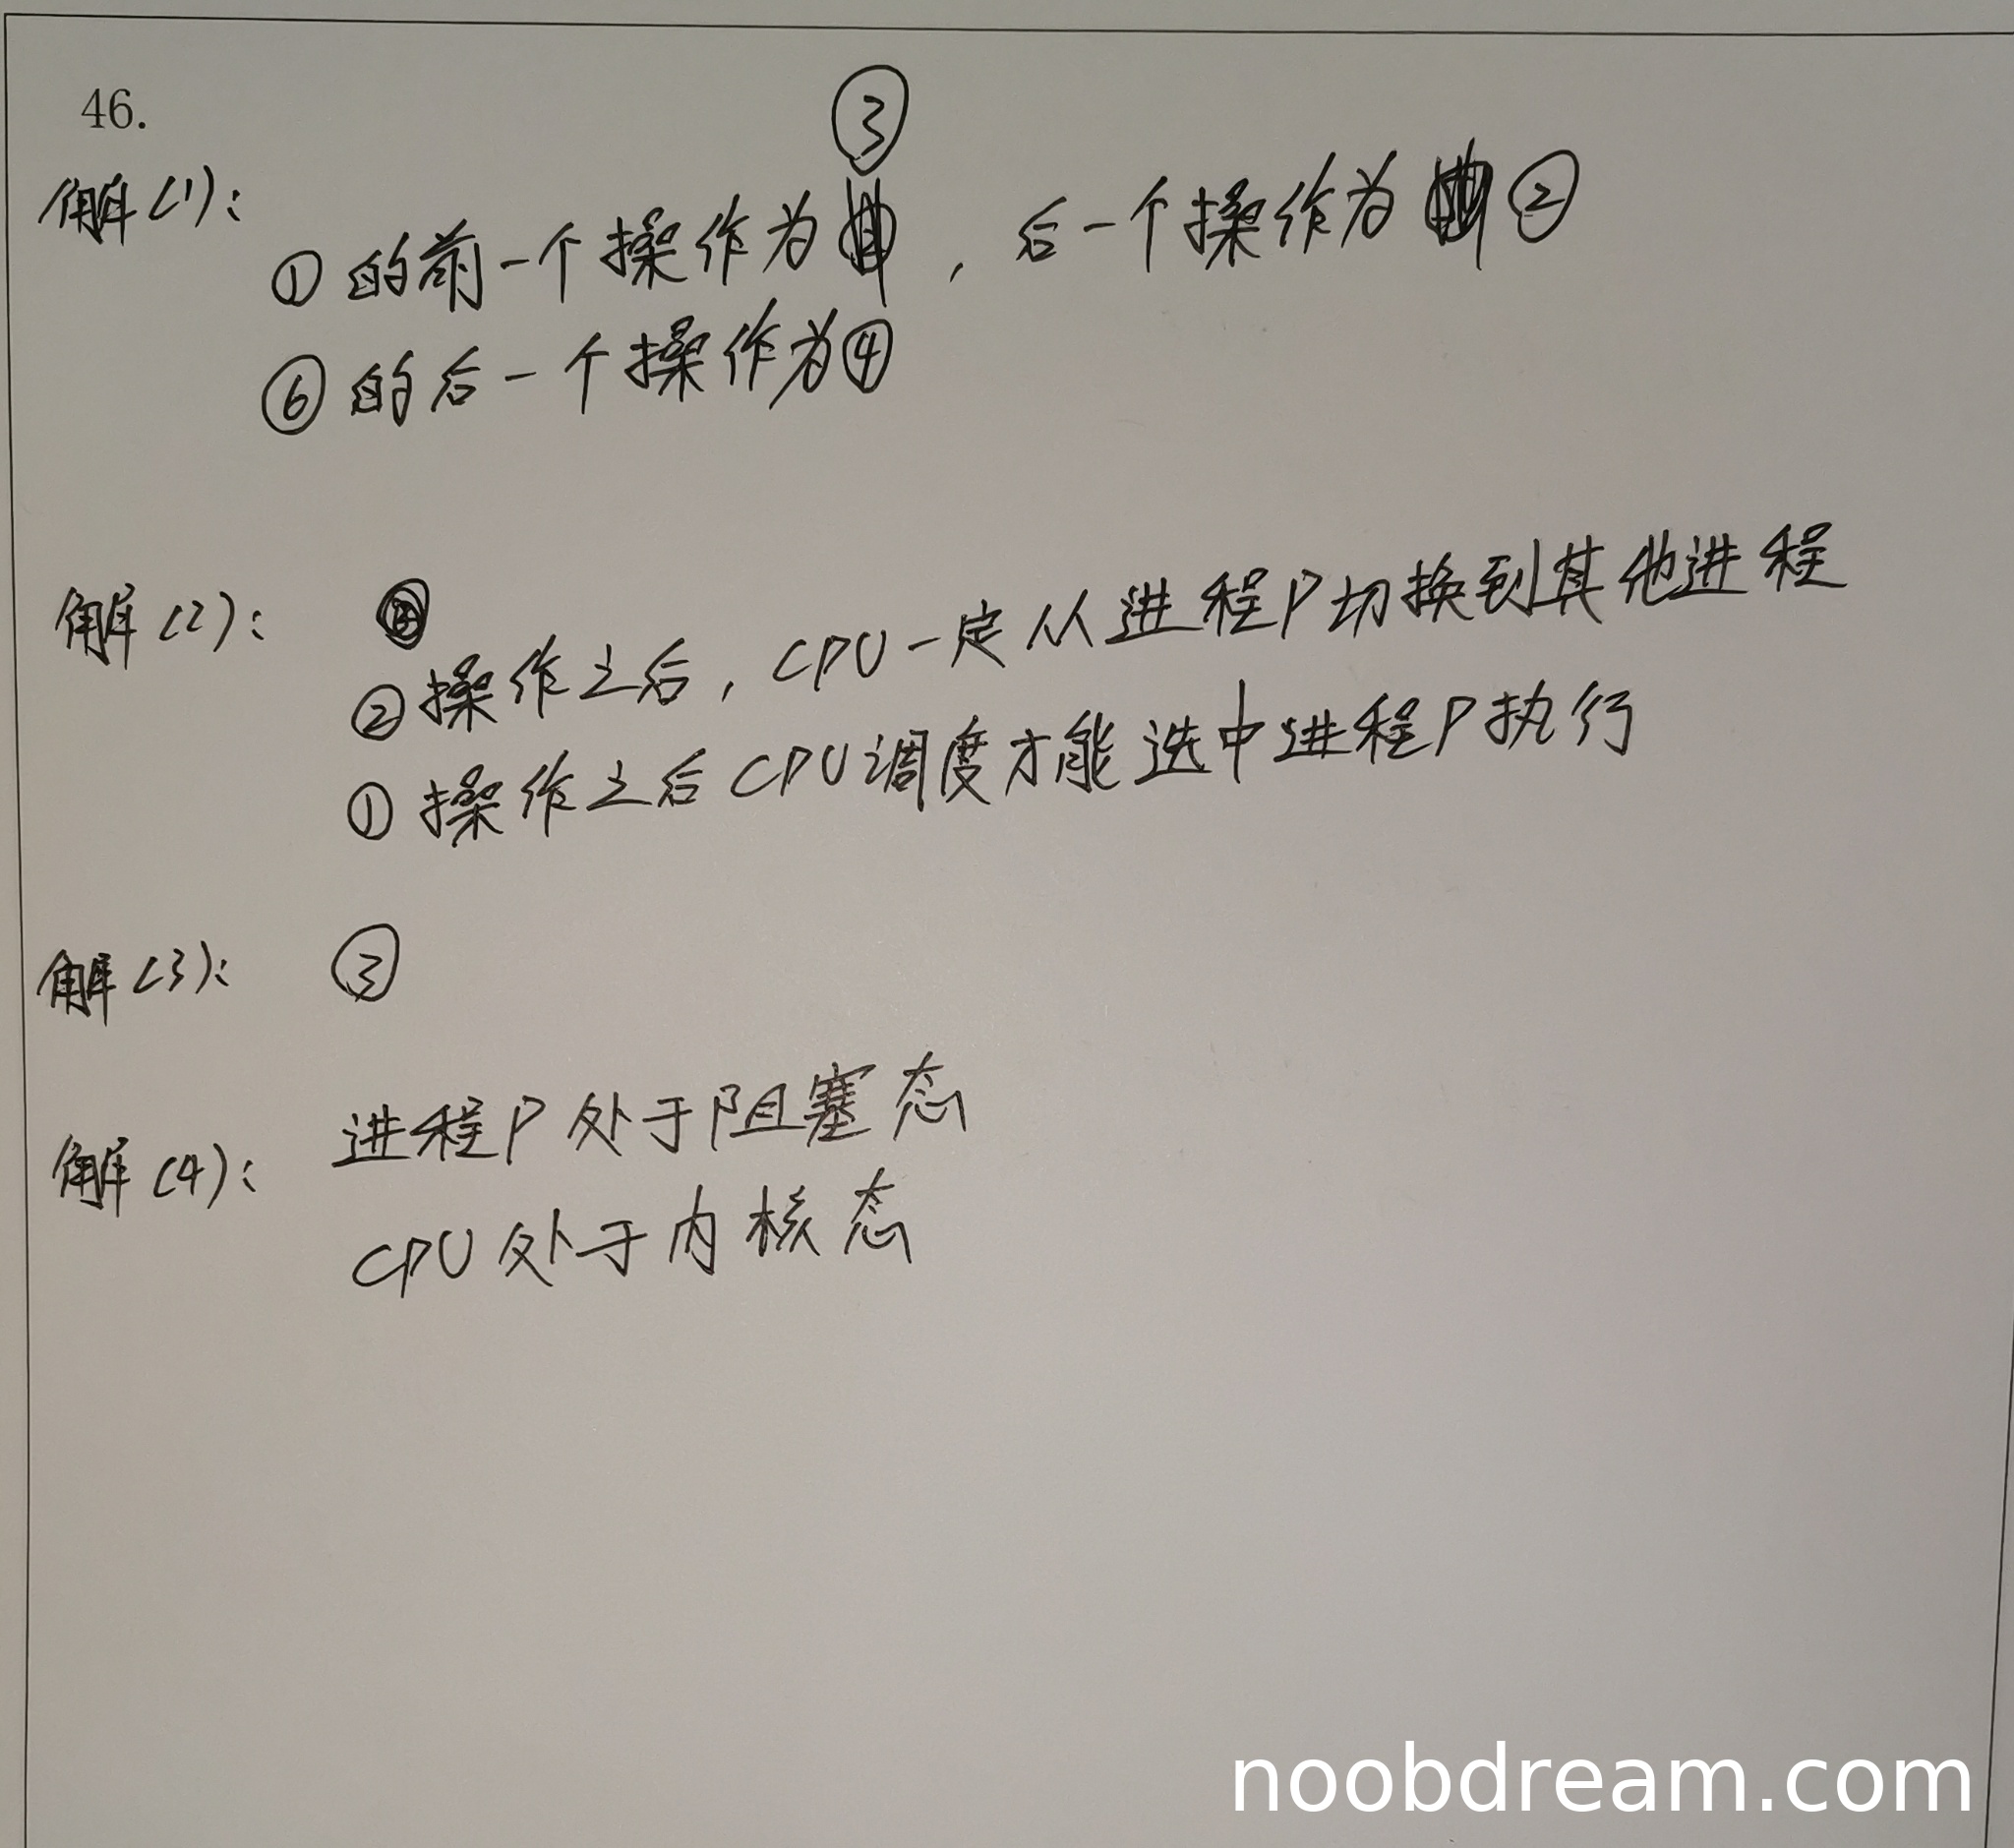 46.
解(1):
①的前一个操作为③, 后一个操作为②
⑥的后一个操作为④
解(2):
②操作之后, CPU一定从进程P切换到其他进程
①操作之后CPU调度才能选中进程P执行
解(3): ③
解(4): 进程P处于阻塞态
CPU处于内核态
noobdream.com